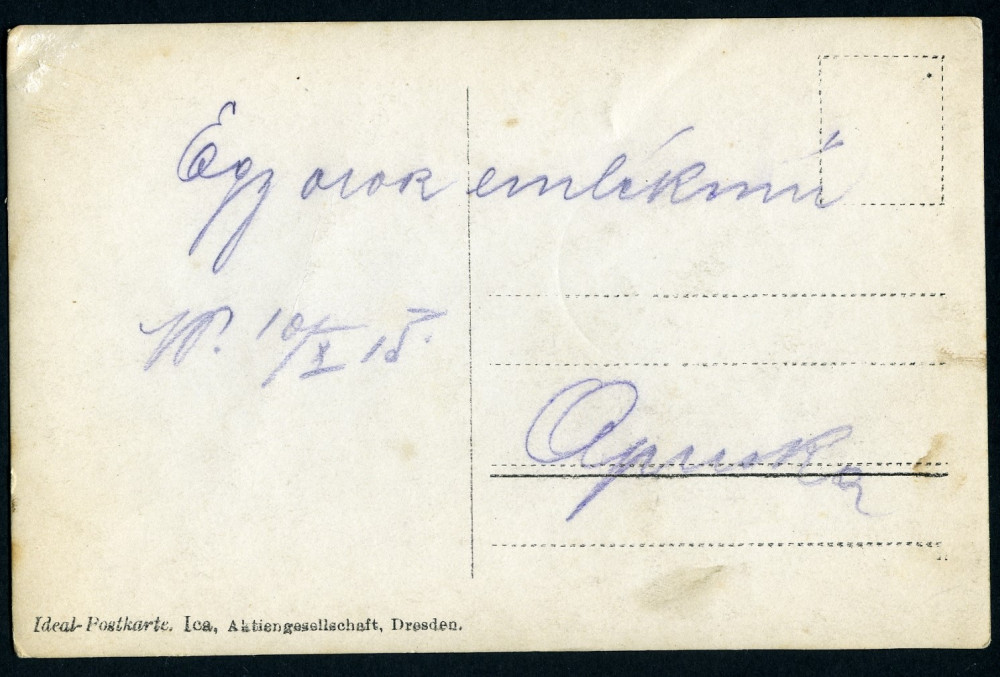 Egy orok emlékmű
10/X 15.
Apuska
Ideal-Postkarte. Ica, Aktiengesellschaft, Dresden.